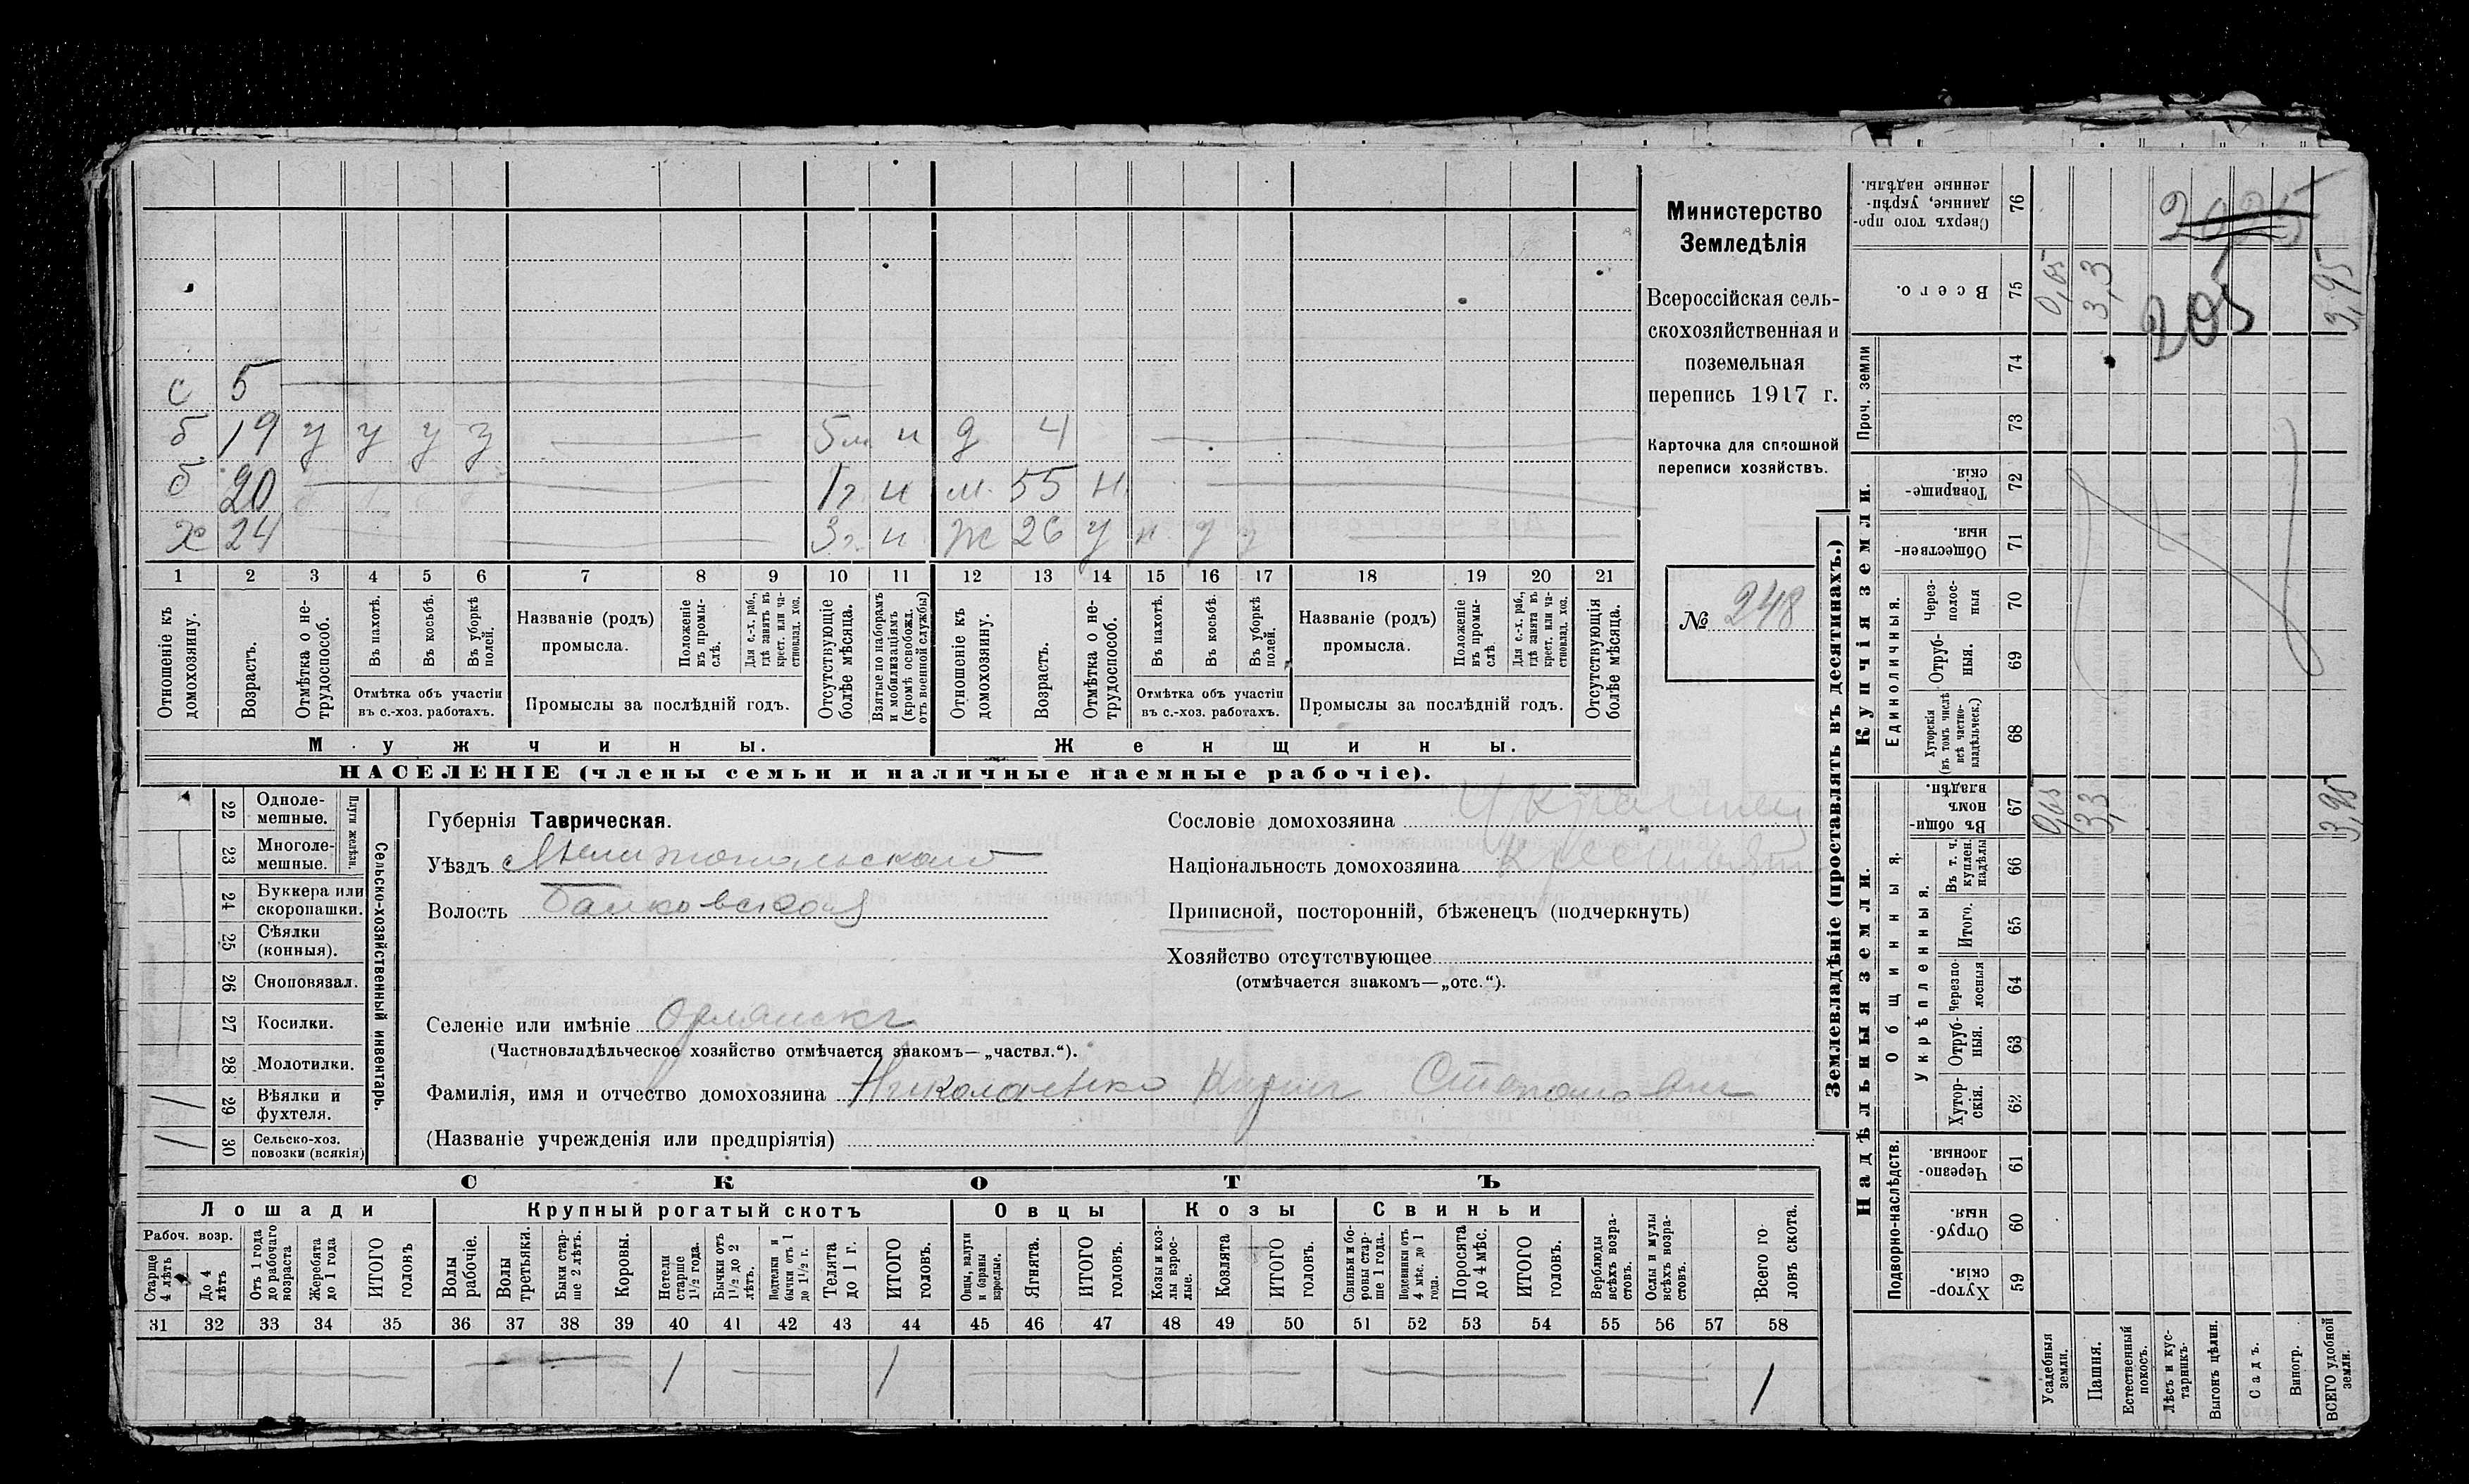 с 5
б 19 у у у у 5 м. и д 4
б 20 1 г. и м. 55 н.
х 24 3 г. и ж 26 у н у у
1 2 3 4 5 6 7 8 9 10 11 12 13 14 15 16 17 18 19 20 21
Отношеніе къ домохозяину.
Возрастъ.
Отмѣтка о нетрудоспособ.
Въ пахотѣ.
Въ косьбѣ.
Въ уборкѣ полей.
Отмѣтка объ участіи въ с.-хоз. работахъ.
Названіе (родъ) промысла.
Положеніе въ промыслѣ.
Для с.-х. раб., гдѣ занятъ въ крест. или частновлад. хоз.
Промыслы за послѣдній годъ.
Отсутствующіе болѣе мѣсяца.
Взятые по наборамъ и мобилизаціямъ (кромѣ освобожд. отъ военной службы)
Отношеніе къ домохозяину.
Возрастъ.
Отмѣтка о нетрудоспособ.
Въ пахотѣ.
Въ косьбѣ.
Въ уборкѣ полей.
Отмѣтка объ участіи въ с.-хоз. работахъ.
Названіе (родъ) промысла.
Положеніе въ промыслѣ.
Для с.-х. раб., гдѣ занята въ крест. или частновлад. хоз.
Промыслы за послѣдній годъ.
Отсутствующія болѣе мѣсяца.
Мужчины.
Женщины.
НАСЕЛЕНІЕ (члены семьи и наличные наемные рабочіе).
Министерство
Земледѣлія
Всероссійская сель-
скохозяйственная и
поземельная
перепись 1917 г.
Карточка для сплошной
переписи хозяйствъ.
№ 248
Плуги желѣзн.
22 Однолемешные.
23 Многолемешные.
24 Буккера или скоропашки.
25 Сѣялки (конныя).
26 Сноповязал.
27 Косилки.
28 Молотилки.
29 Вѣялки и фухтеля. /
30 Сельско-хоз. повозки (всякія) /
Сельско-хозяйственный инвентарь.
Губернія Таврическая.
Уѣздъ Мелитопольскаго
Волость Балковской
Селеніе или имѣніе Орлянскъ
(Частновладѣльческое хозяйство отмѣчается знакомъ — „частвл.“).
Фамилія, имя и отчество домохозяина Николаенко Кирил Степанович
(Названіе учрежденія или предпріятія)
Сословіе домохозяина Украинец
Національность домохозяина Крестьян
Приписной, посторонній, бѣженецъ (подчеркнуть)
Хозяйство отсутствующее
(отмѣчается знакомъ—„отс.“).
СКОТЪ
Лошади
Крупный рогатый скотъ
Овцы
Козы
Свиньи
Рабоч. возр.
Старше 4 лѣтъ
До 4 лѣтъ
Отъ 1 года до рабочаго возраста
Жеребята до 1 года
ИТОГО головъ
Волы рабочіе.
Волы третьяки.
Быки старше 2 лѣтъ.
Коровы.
Нетели старше 1½ года.
Бычки отъ 1½ до 2 лѣтъ.
Подтелки и бычки отъ 1 до 1½ г.
Телята до 1 г.
ИТОГО головъ.
Овцы, валухи и бараны взрослые.
Ягнята.
ИТОГО головъ.
Козы и козлы взрослые.
Козлята
ИТОГО головъ.
Свиньи и боровы старше 1 года.
Подсвинки отъ 4 мѣс. до 1 года.
Поросята до 4 мѣс.
ИТОГО головъ.
Верблюды всѣхъ возрастовъ.
Ослы и мулы всѣхъ возрастовъ.
Всего головъ скота.
31 32 33 34 35 36 37 38 39 40 41 42 43 44 45 46 47 48 49 50 51 52 53 54 55 56 57 58
1 1 1
Землевладѣніе (проставлять въ десятинахъ.)
Купчія земли.
Надѣльныя земли.
Сверхъ того проданные, укрѣпленные надѣлы. 76
Всего. 75 0,65 3,3 3,95
2025
205
Проч. земли 74
73
Товарищескія. 72
Общественныя. 71
Единоличныя.
Черезполосныя 70
Отрубныя. 69
Хуторскія (въ томъ числѣ всѣ частновладѣльческ.) 68
Общинныя.
Въ общинномъ владѣн. 67 0,65 3,3 3,95
Укрѣпленныя.
Въ т. ч. куплен. надѣлы 66
Итого. 65
Черезполосныя 64
Отрубныя. 63
Хуторскія. 62
Подворно-наслѣдств.
Черезполосныя. 61
Отрубныя. 60
Хуторскія. 59
Усадебныя земли.
Пашня.
Естественный покосъ.
Лѣсъ и кустарникъ.
Выгонъ цѣлин.
Садъ.
Виногр.
ВСЕГО удобной земли.